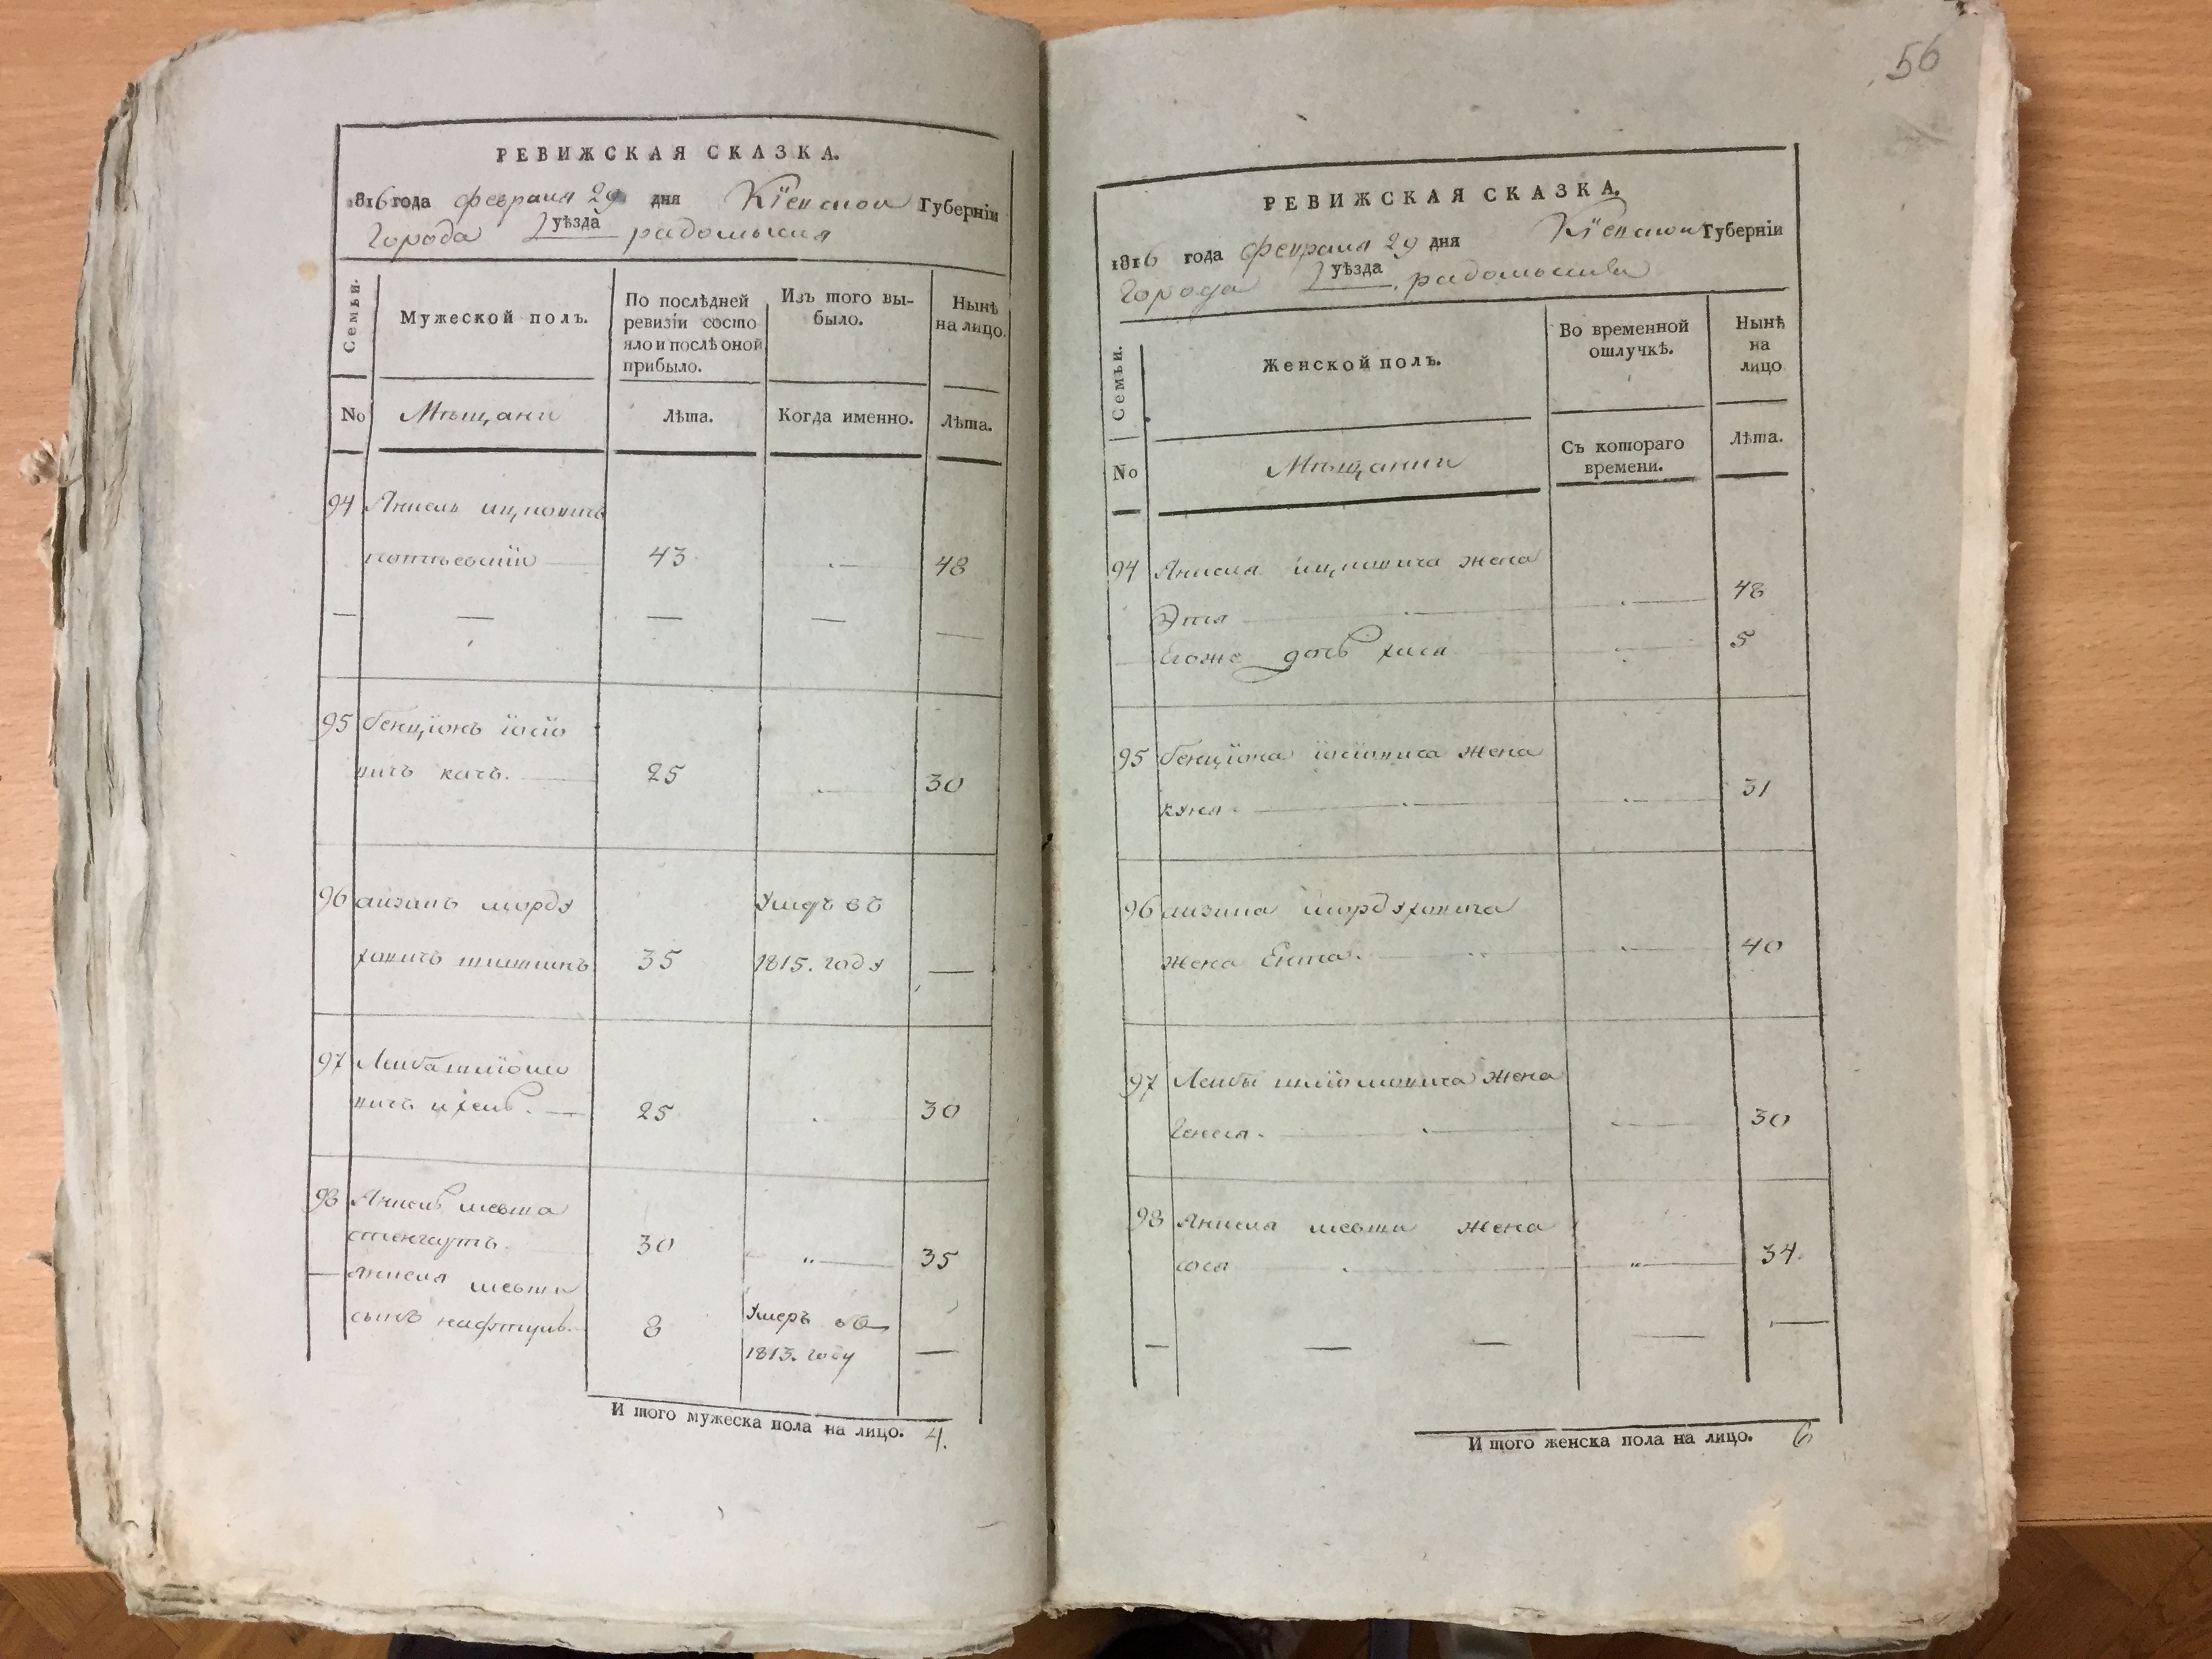 РЕВИЖСКАЯ СКАЗКА.
1816 года февраля 29 дня Кіевской Губерніи
Города уѣзда радомысля
Семьи.
Мужеской полъ.
По послѣдней ревизіи состо
яло и послѣ оной прибыло.
Изъ того вы-
было.
Нынѣ
на лицо.
No
Мѣщани
Лѣта.
Когда именно.
Лѣта.
94 Анкель ицковичъ
43
48
95 бенціонъ іосіо
вичъ качъ.
25
30
96 айзикъ морду
ховичъ 35
Умеръ въ
1815. году
97 Лейба шліомо
вичъ 25
30
98 Анкель
30
35
сынъ нафтуль.
8
Умеръ въ
1813. году
И того мужеска пола на лицо. 4.
56
РЕВИЖСКАЯ СКАЗКА.
1816 года февраля 29 дня Кіевской Губерніи
Города уѣзда радомысля
Семьи.
Женской полъ.
Во временной
отлучкѣ.
Нынѣ
на
лицо
No
Мѣщанки
Съ котораго
времени.
Лѣта.
94 Анкеля ицковича жена
Этля
48
Егоже дочь хася
5
95 бенціона іосіовича жена
куня
31
96 айзика мордуховича
жена Ента.
40
97 Лейбы шліомовича жена
Генеся.
30
98 Анкеля жена
сося
34.
И того женска пола на лицо. 6